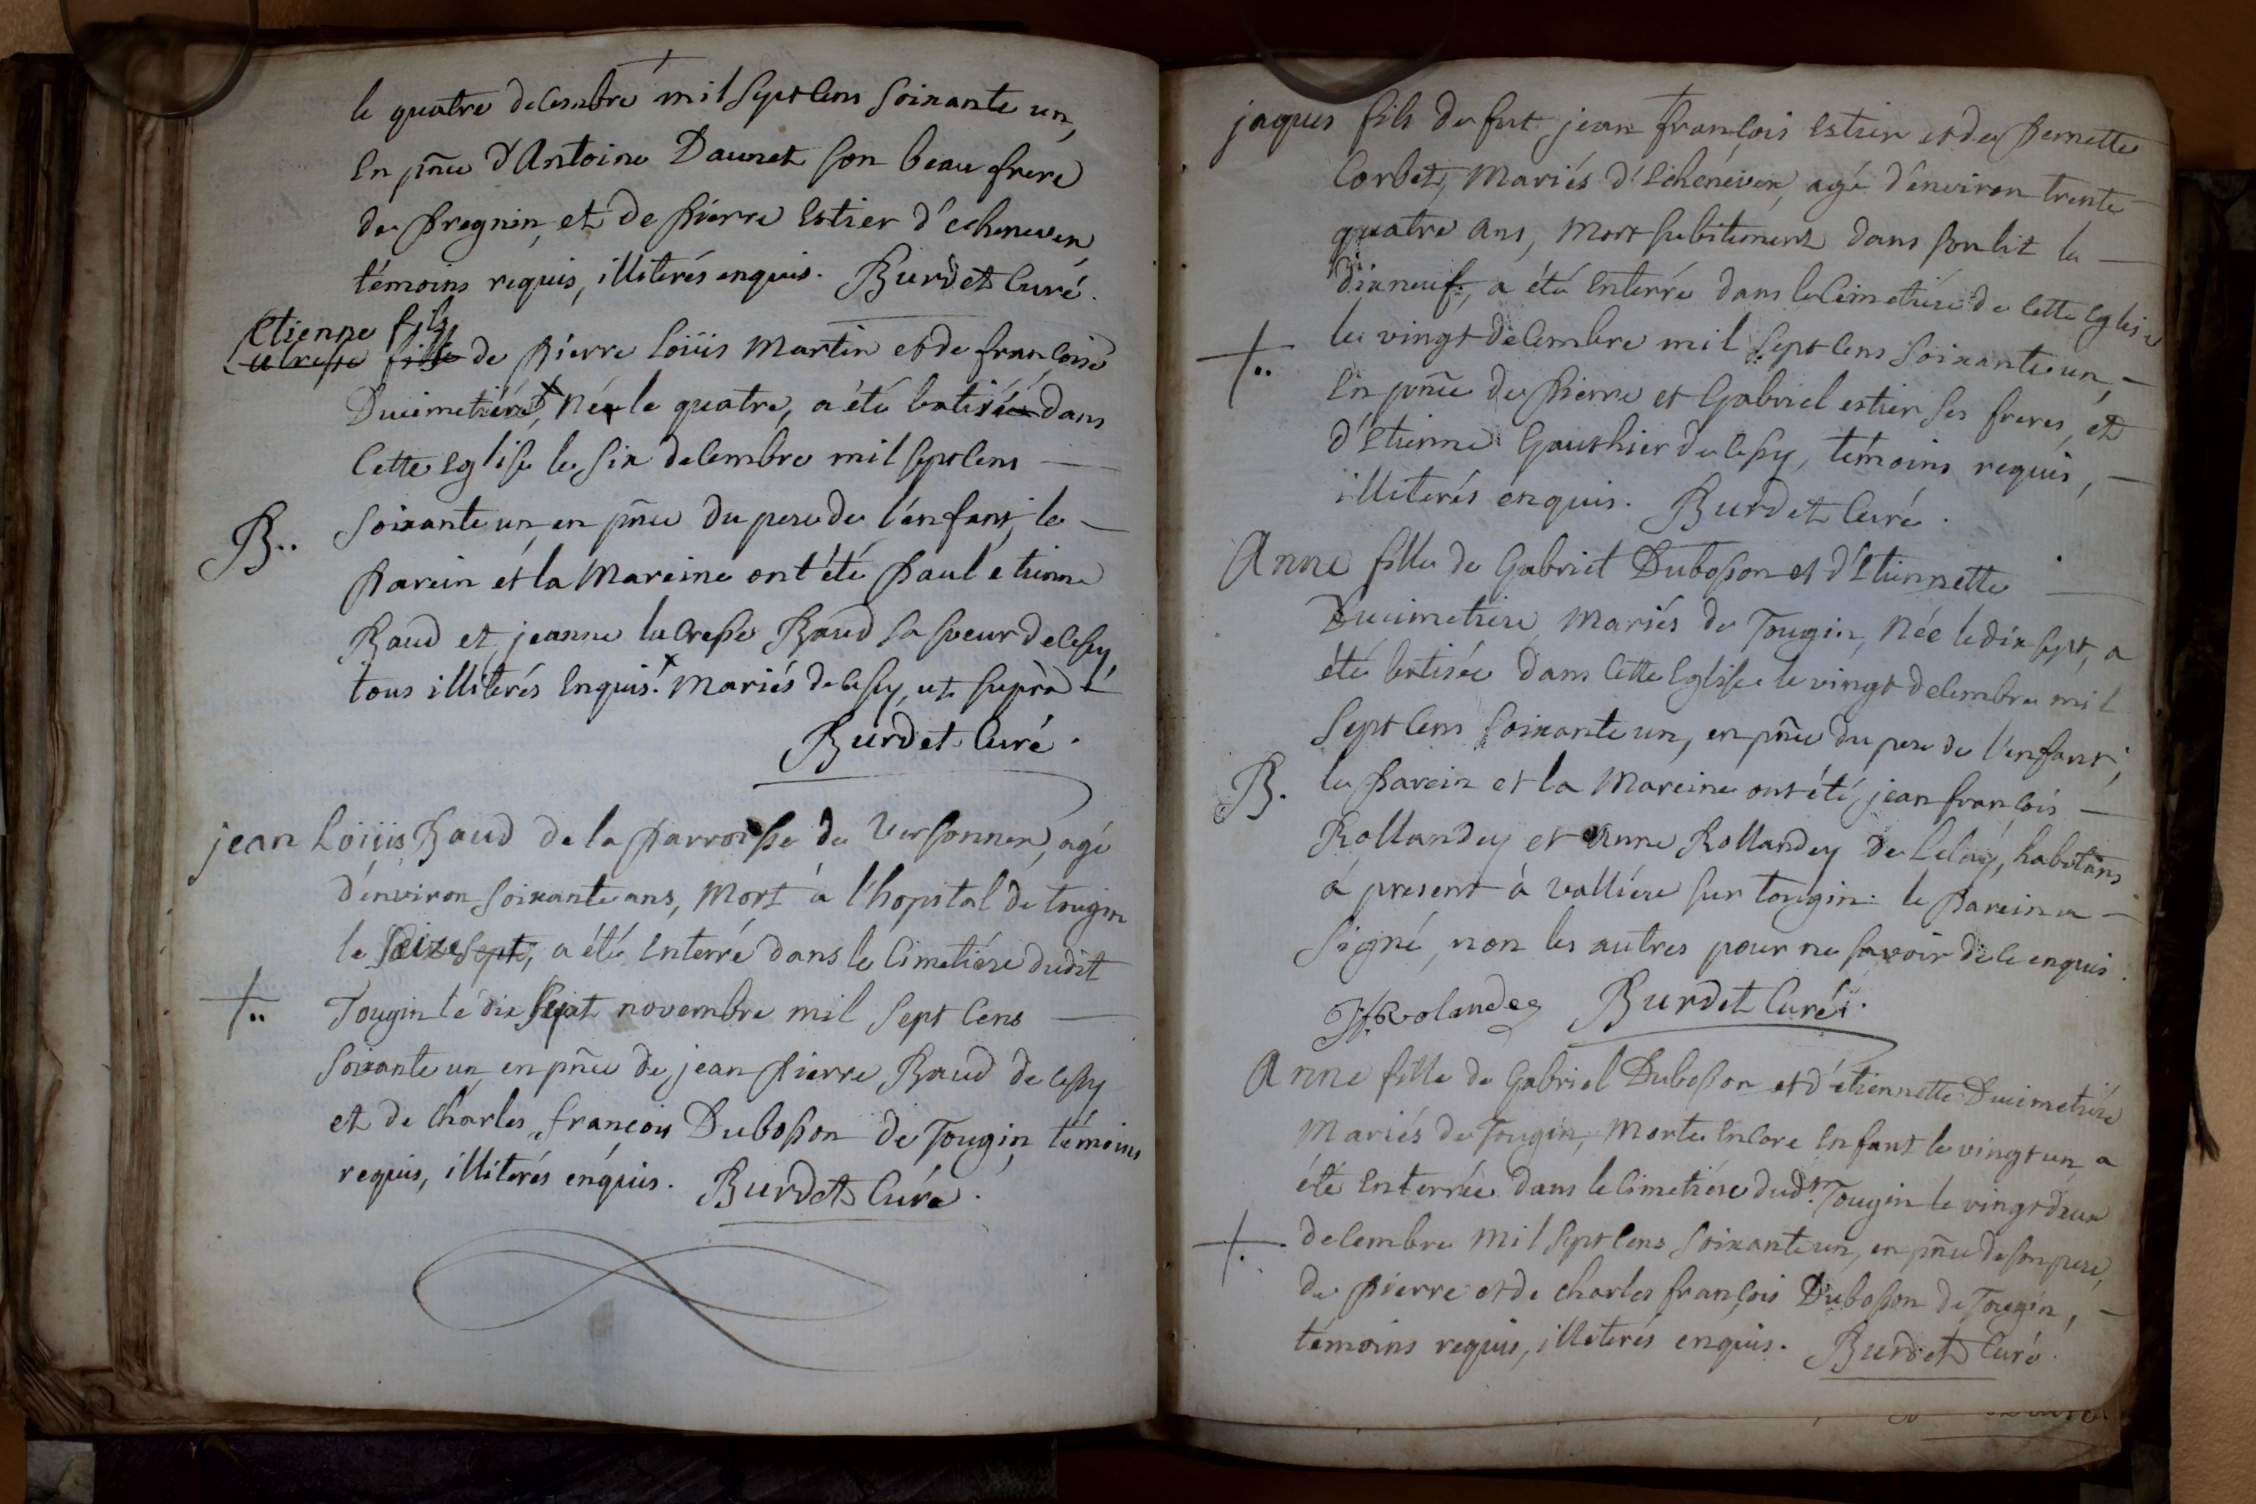 le quatre decembre mil sept cens soixante un,
En pñce d'Antoine Daunet son beau frere
de Pregnin, et de Pierre Estier d'echenevex,
témoins requis, illiterés enquis. Burdet Curé.
Etienne fils
Lucresse fille de Pierre Loüis Martin et de françoise
Ducimetiére, Né le quatre, a été batisé dans
Cette Eglise le six decembre mil sept cens
B.. soixante un, en pñce du pere de l'enfant, le
Parein et la Mareine ont été Paul etienne
Baud et jeanne lucresse Baud sa soeur de cessy,
tous illiterés Enquis. Mariés de cessy, ut suprà
Burdet Curé.
jean Loüis Baud de la Parroisse de Versonnex, agé
d'environ soixante ans, Mort à l'hopital de tougin
le seize sept, a été Enterré dans le Cimetiére dudit
Tougin le dix sept novembre mil sept Cens
soixante un, en pñce de jean Pierre Baud de cessy
et de Charles françois Dubosson de Tougin témoins
requis, illiterés enquis. Burdet Curé.
jaques fils de fut jean françois Estier et de Pernette
Corbet, Mariés d'Echenevex, agé d'environ trente
quatre ans, Mort subitement dans son lit le
dixneuf, a été Enterré dans le Cimetiére de Cette Eglise
le vingt decembre mil sept cens soixante un,
En pñce de Pierre et Gabriel estier ses freres, et
d'Etienne Gauthier de cessy, témoins requis,
illiterés enquis. Burdet Curé.
Anne fille de Gabriel Dubosson et d'Etiennette
Ducimetiere Mariés de Tougin, Née le dix sept, a
été batisée dans Cette Eglise le vingt decembre mil
sept cens soixante un, en pñce du pere de l'enfant,
B. le Parein et la Mareine ont été jean françois
Rollandey et Anne Rollandey de habitans
à present à valliere sur tougin: le Parein a
signé, non les autres pour ne savoir de ce enquis.
Rolandez Burdet Curé.
Anne fille de Gabriel Dubosson et d'etiennette Ducimetiére
Mariés de Tougin, Morte Encore Enfant le vingt un, a
été Enterrée dans le Cimetiére dud.t Tougin le vingt deux
decembre Mil sept cens soixante un, en pñce de son pere,
de Pierre et de charles françois Dubosson de Tougin,
témoins requis, illiterés enquis. Burdet Curé.